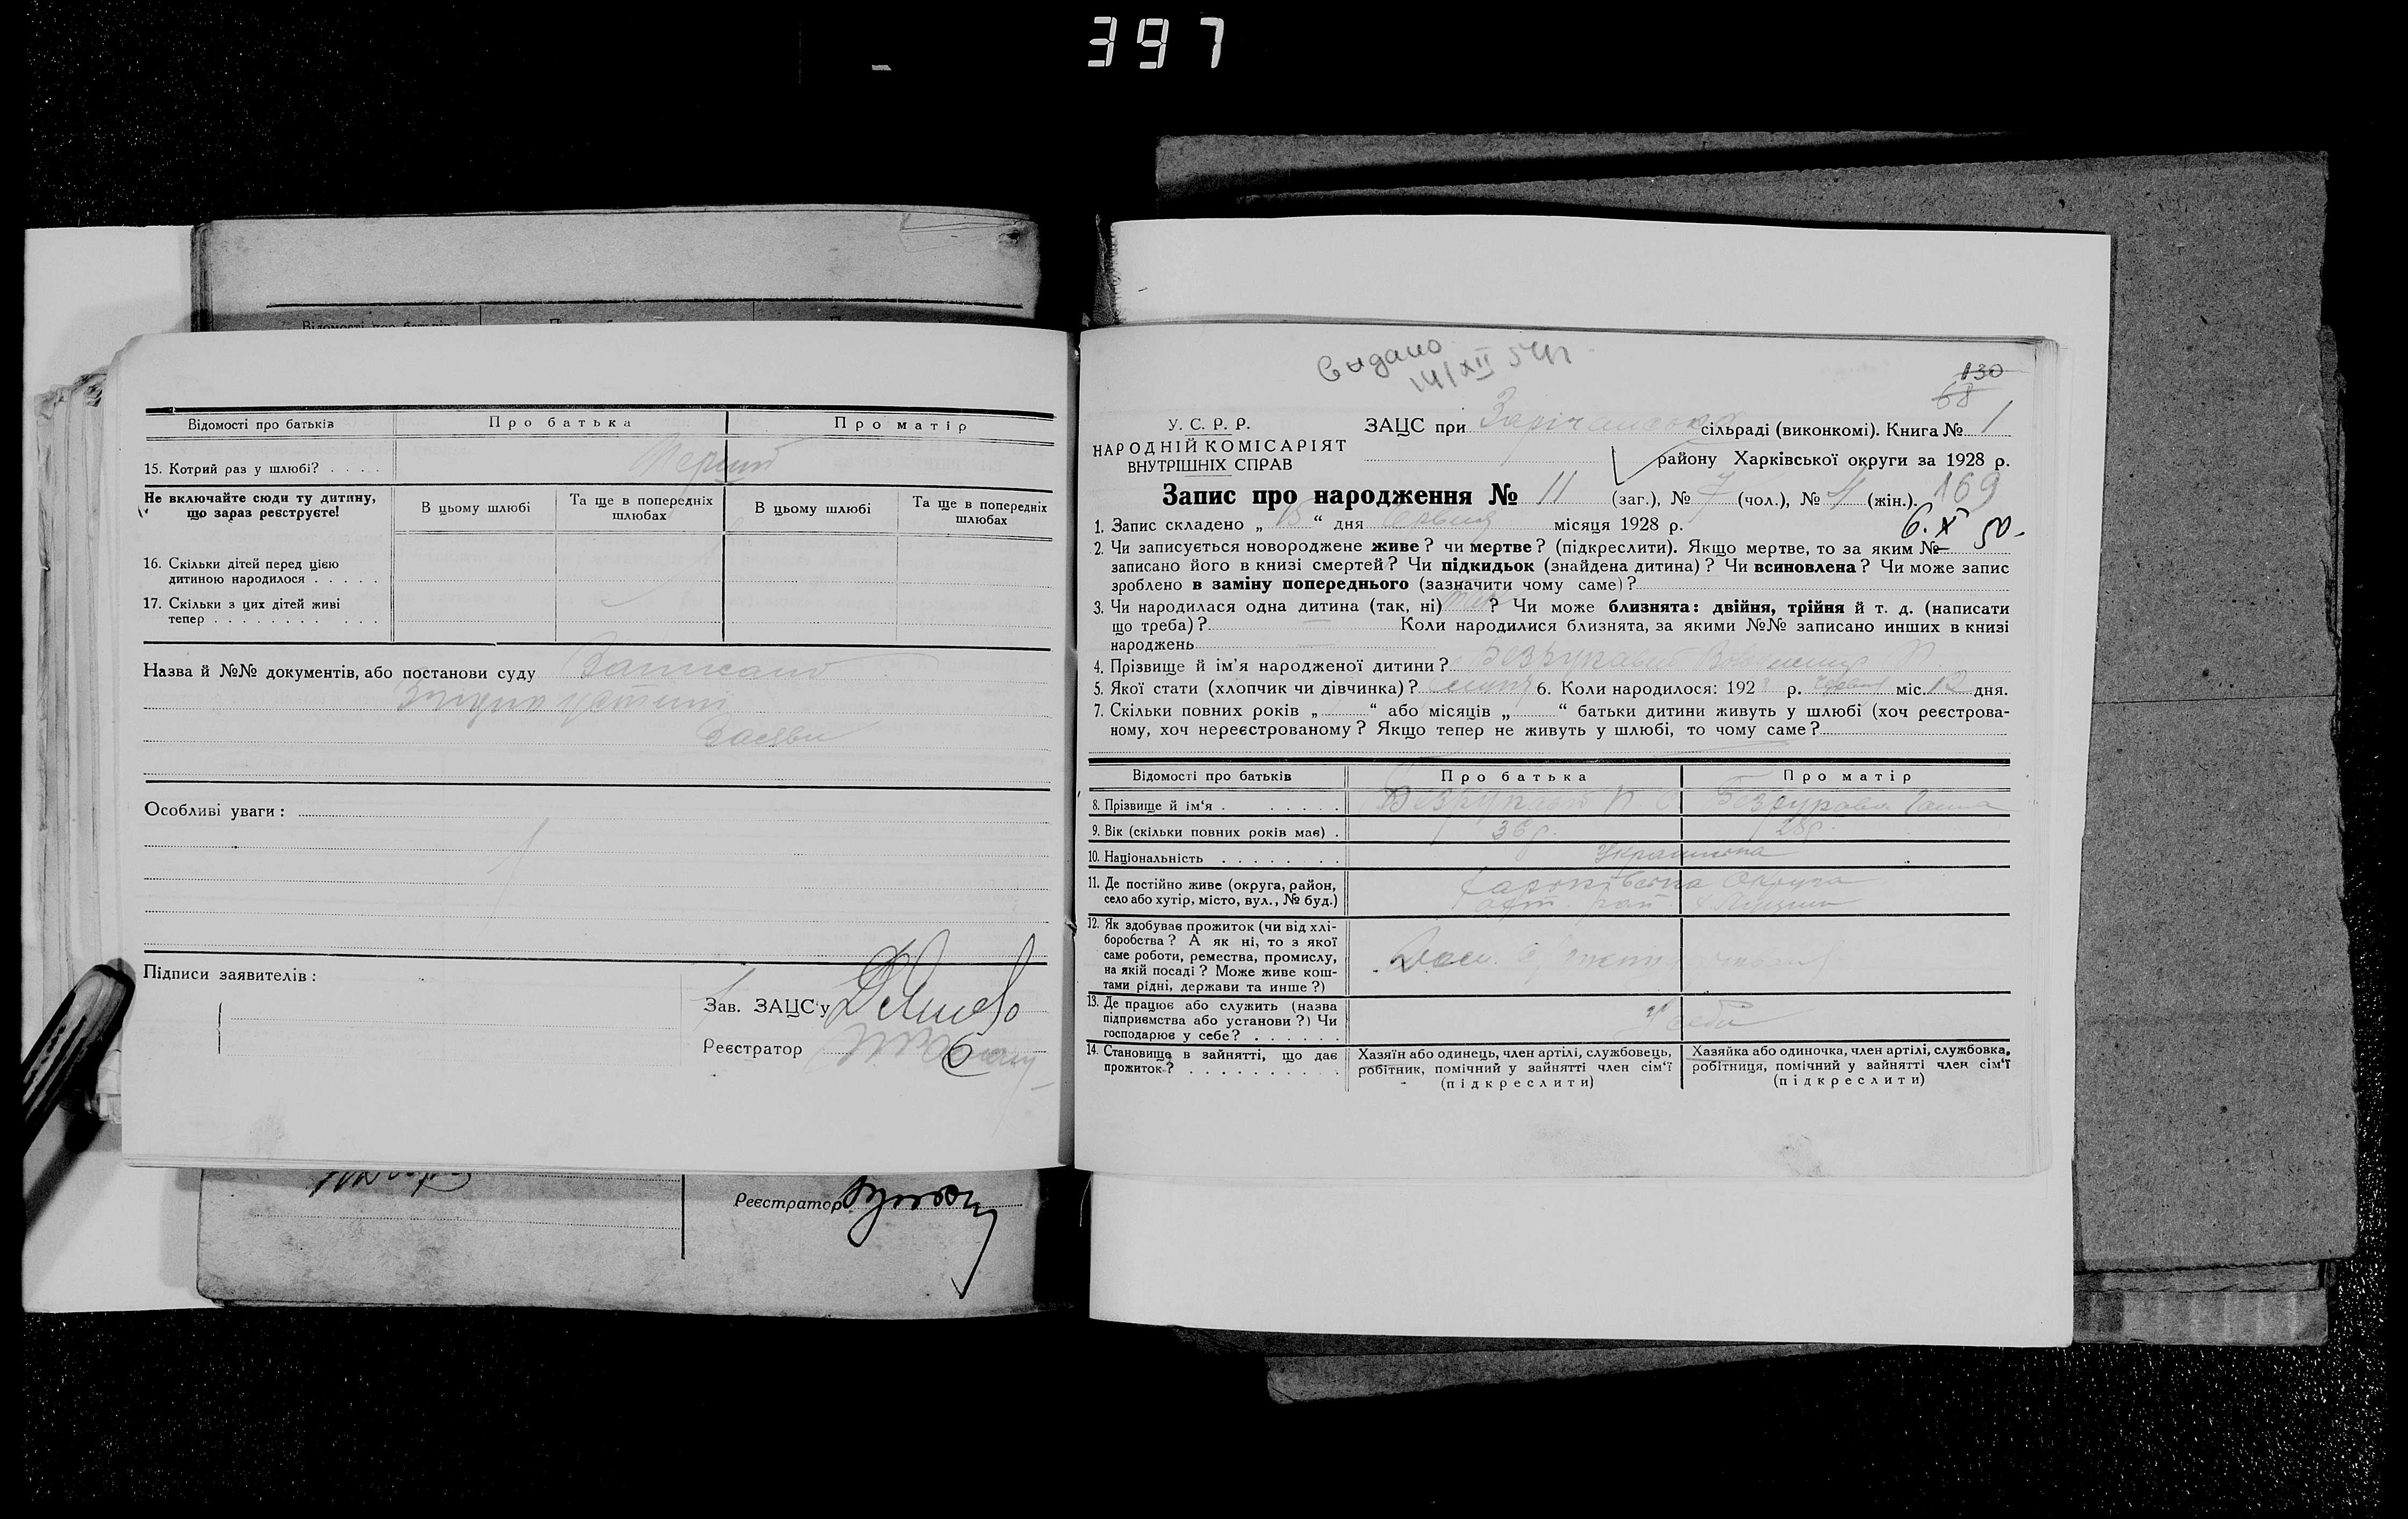 397
Відомості про батьків
Про батька
Про матір
15. Котрий раз у шлюбі? . . . .
Перший
Не включайте сюди ту дитину,
що зараз реєструєте!
В цьому шлюбі
Та ще в попередніх
шлюбах
В цьому шлюбі
Та ще в попередніх
шлюбах
16. Скільки дітей перед цією
дитиною народилося . . . . .
17. Скільки з цих дітей живі
тепер . . . . . . . . . . .
Назва й №№ документів, або постанови суду Записано
Згідно устної
Заяви
Особливі уваги:
Підписи заявителів:
Зав. ЗАЦС'у
Реєстратор
Реєстратор
Видано
14/XII 54
130
68
У. С. Р. Р.
НАРОДНІЙ КОМІСАРІЯТ
ВНУТРІШНІХ СПРАВ
ЗАЦС при сільраді (виконкомі). Книга № 1
району Харківської округи за 1928 р.
Запис про народження № 11 (заг.), № 7 (чол.), № 4 (жін.). 169
1. Запис складено „ 15 “ дня червня місяця 1928 р.
6. X 50-
2. Чи записується новороджене живе? чи мертве? (підкреслити). Якщо мертве, то за яким №
записано його в книзі смертей? Чи підкидьок (знайдена дитина)? Чи всиновлена? Чи може запис
зроблено в заміну попереднього (зазначити чому саме)?
3. Чи народилася одна дитина (так, ні) так? Чи може близнята: двійня, трійня й т. д. (написати
що треба)? — Коли народилися близнята, за якими №№ записано инших в книзі
народжень —
4. Прізвище й ім'я народженої дитини?
5. Якої стати (хлопчик чи дівчинка)? 6. Коли народилося: 1928 р. червня міс. 12 дня.
7. Скільки повних років „ “ або місяців „ “ батьки дитини живуть у шлюбі (хоч реєстрова-
ному, хоч нереєстрованому? Якщо тепер не живуть у шлюбі, то чому саме?
Відомості про батьків
Про батька
Про матір
8. Прізвище й ім'я . . . . . .
9. Вік (скільки повних років має) .
36 р.
28 р.
10. Національність . . . . . . . .
Українська
11. Де постійно живе (округа, район,
село або хутір, місто, вул., № буд.)
Харківська Округа
12. Як здобуває прожиток (чи від хлі-
боробства? А як ні, то з якої
саме роботи, ремества, промислу,
на якій посаді? Може живе кош-
тами рідні, держави та инше?)
13. Де працює або служить (назва
підприємства або установи?) Чи
господарює у себе? . . . . . .
У себе
14. Становище в зайнятті, що дає
прожиток? . . . . . . . . . .
Хазяїн або одинець, член артілі, службовець,
робітник, помічний у зайнятті член сім'ї
(підкреслити)
Хазяйка або одиночка, член артілі, службовка,
робітниця, помічний у зайнятті член сім'ї
(підкреслити)